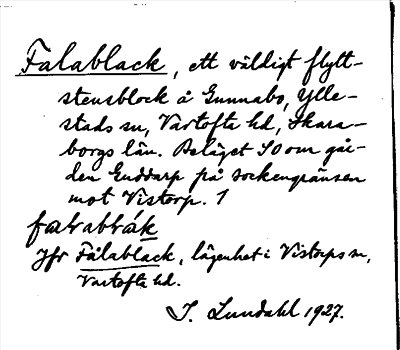 Falablack, ett väldigt flytt-
stensblock å Gunnabo, Ylle-
stads sn, Vartofta hd, Skara-
borgs län. Beläget SO om går-
den Enddarp på sockengränsen
mot Vistorp. 1
Jfr Fålablack, lägenhet i Vistorps sn,
Vartofta hd.
I. Lundahl 1927.